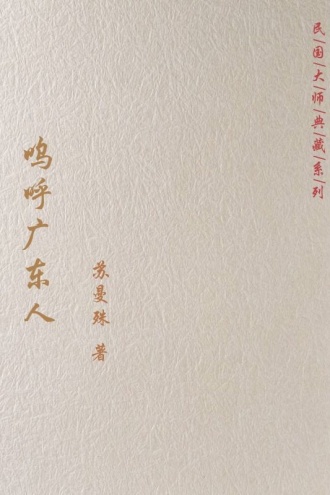 民|国|大|师|典|藏|系|列
呜呼广东人
苏曼殊 著